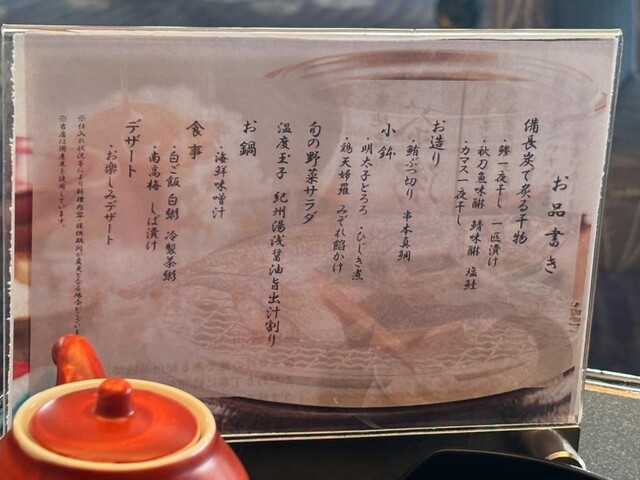 お品書き
備長炭で炙る干物
・鯵一夜干し 一匹漬け
・秋刀魚味醂 鯖味醂 塩鮭
・カマス一夜干し
お造り
・鮪ぶつ切り 串本真鯛
小鉢
・明太子とろろ ・ひじき煮
・鶏天婦羅 みぞれ餡かけ
旬の野菜サラダ
温度玉子 紀州湯浅醤油旨出汁割り
お鍋
・海鮮味噌汁
食事
・白ご飯 白粥 冷製茶粥
・南高梅 しば漬け
デザート
・お楽しみデザート
※仕入れ状況等により料理内容・提供期間が変更となる場合がございま
※当店は国産米を使用しています。